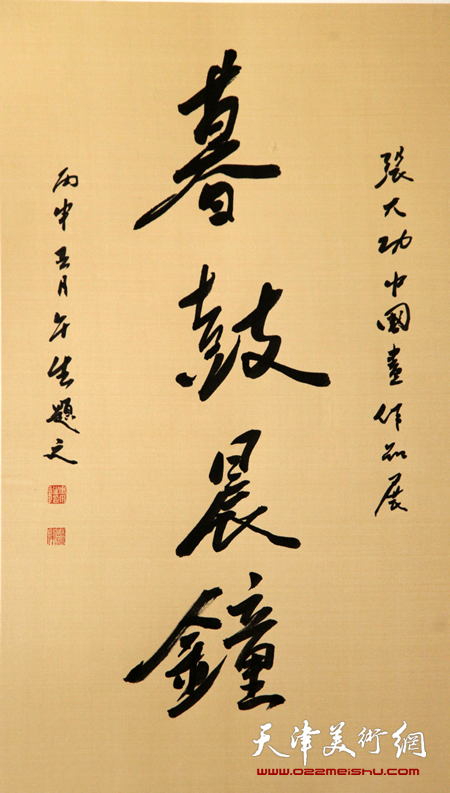 張大功中國畫作品展
暮鼓晨鐘
丙申五月午生題文
天津美術網
www.022meishu.com